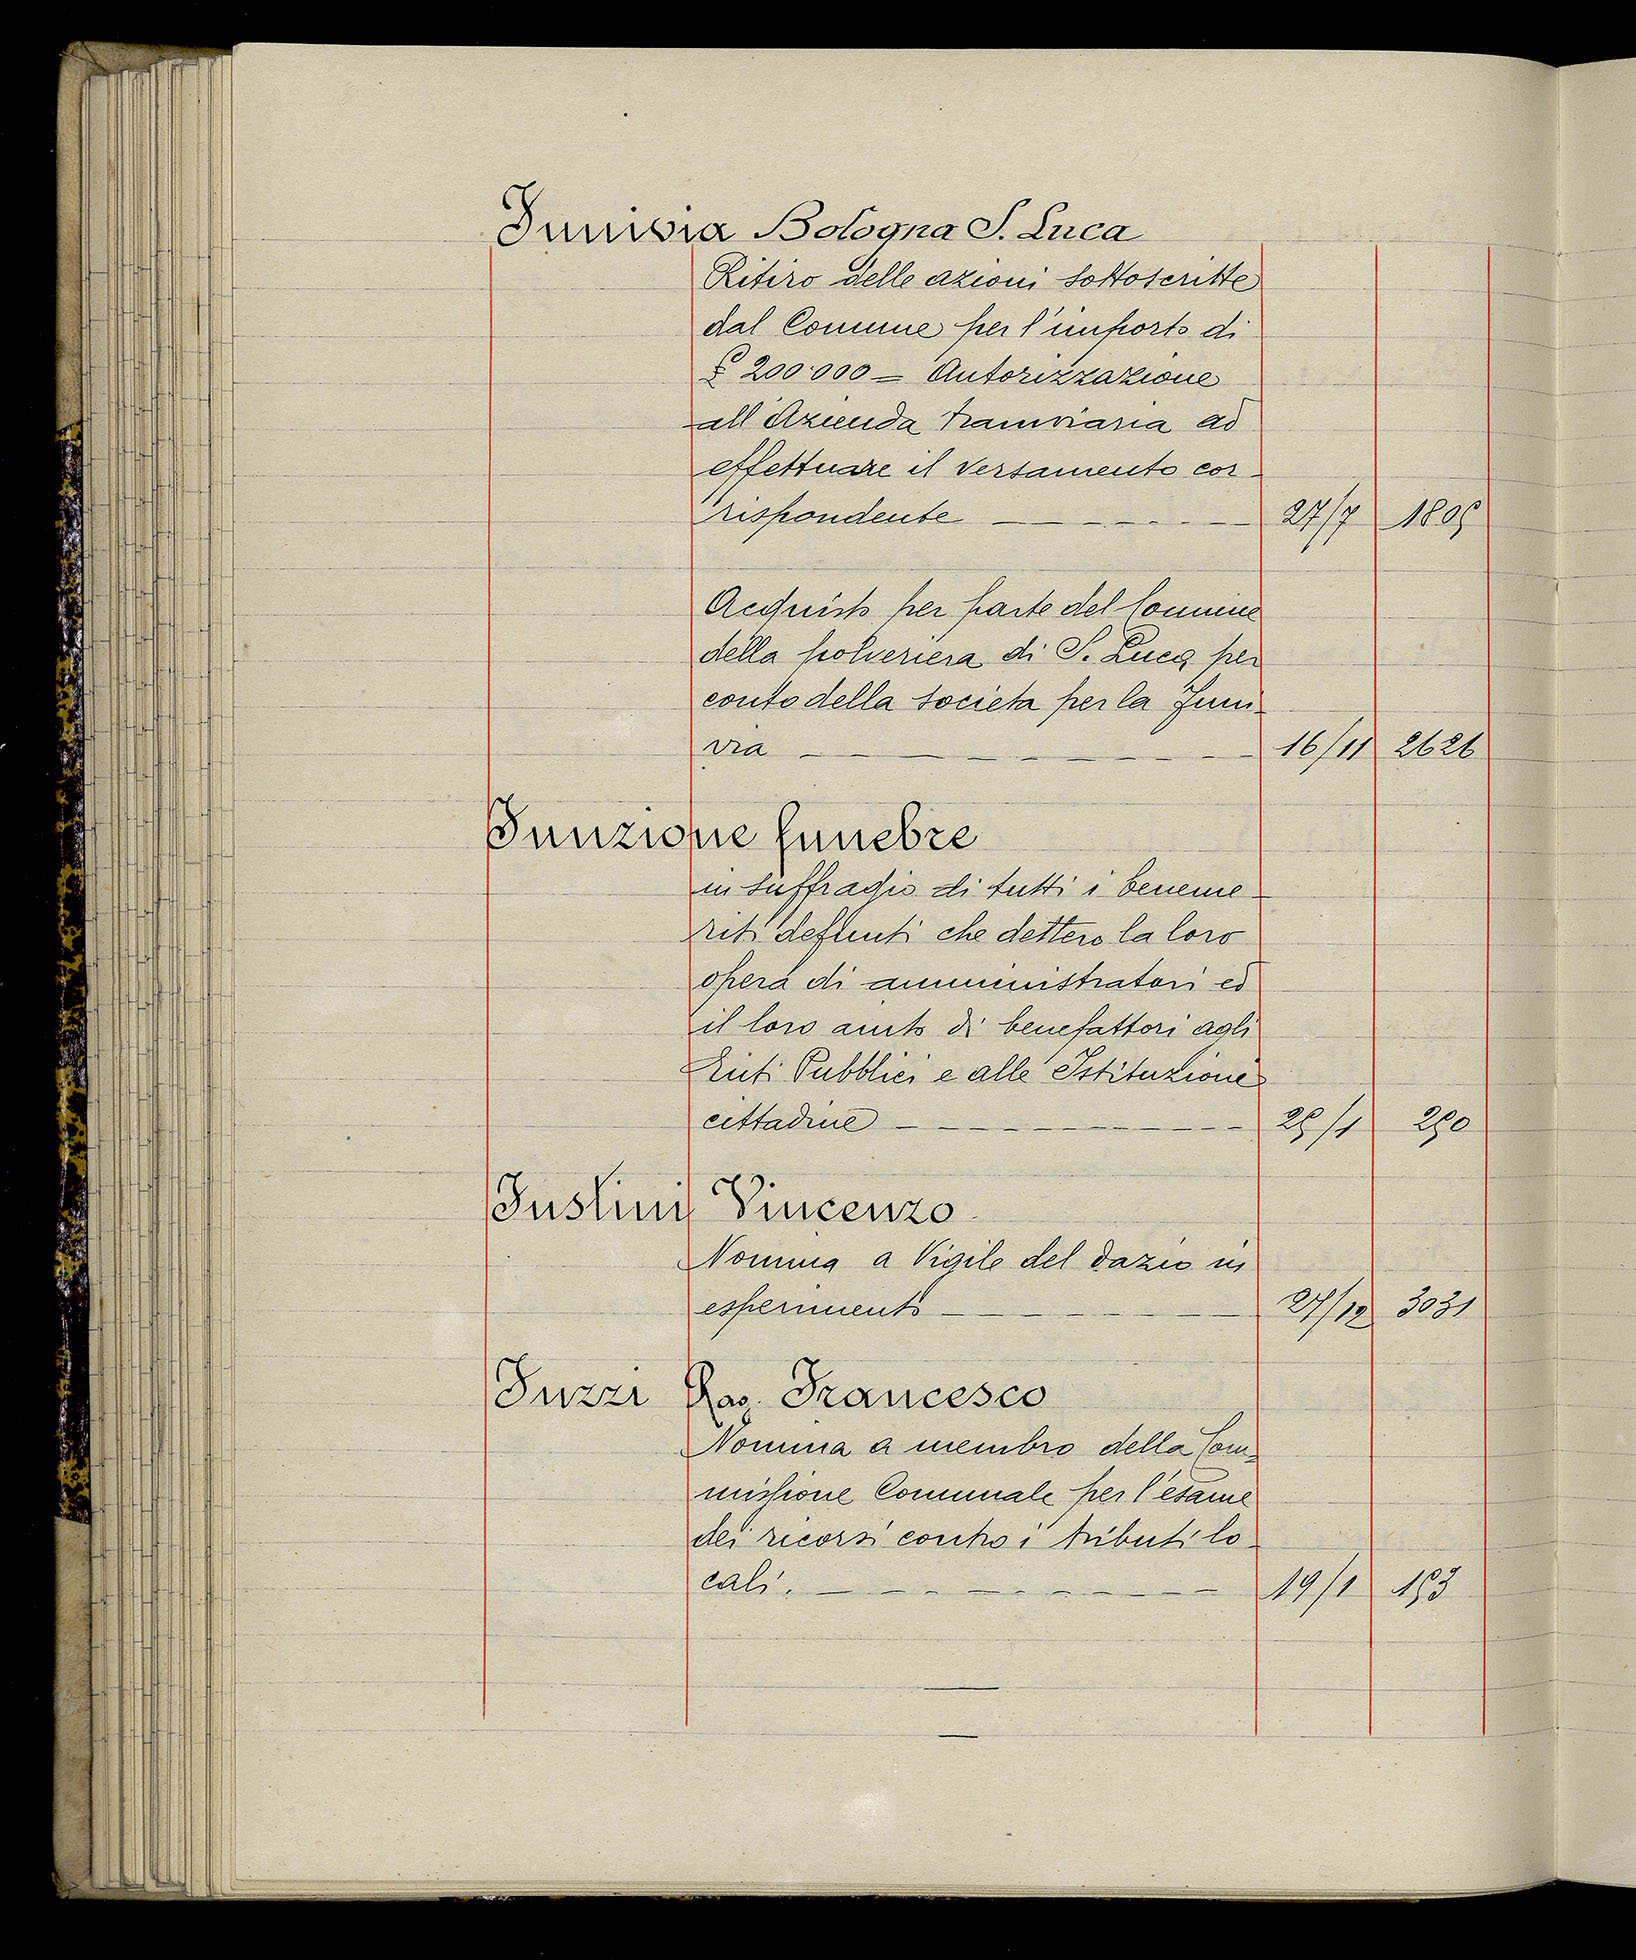 Funivia Bologna S. Luca
Ritiro delle azioni sottoscritte
dal Comune per l'importo di
£ 200.000 = Autorizzazione
all'Azienda tramviaria ad
effettuare il versamento cor-
rispondente 27/7 1805
Acquisto per parte del Comune
della polveriera di S. Luca per
conto della società per la Funi-
via 16/11 2626
Funzione funebre
in suffragio di tutti i beneme-
riti defunti che dettero la loro
opera di amministratori ed
il loro aiuto di benefattori agli
Enti Pubblici e alle Istituzione
cittadine 25/1 250
Fustini Vincenzo
Nomina a Vigile del dazio in
esperimento 27/12 3031
Fuzzi Rag. Francesco
Nomina a membro della Com-
missione Comunale per l'esame
dei ricorsi contro i tributi lo-
cali. 19/1 153